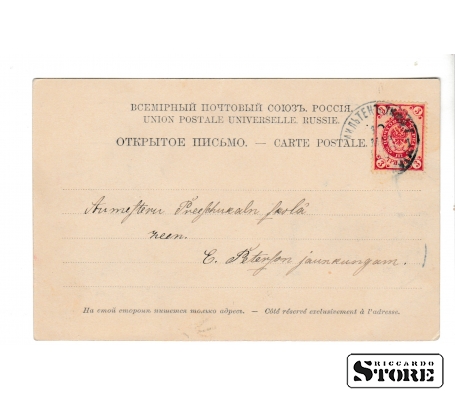 ВСЕМІРНЫЙ ПОЧТОВЫЙ СОЮЗЪ. РОССІЯ.
UNION POSTALE UNIVERSELLE. RUSSIE.
ОТКРЫТОЕ ПИСЬМО. — CARTE POSTALE.
3 3
skolâ
C. Peterson jaunkungam.
На этой сторонѣ пишется только адресъ. — Côté réservé exclusivement à l'adresse.
RICCARDO
STORE